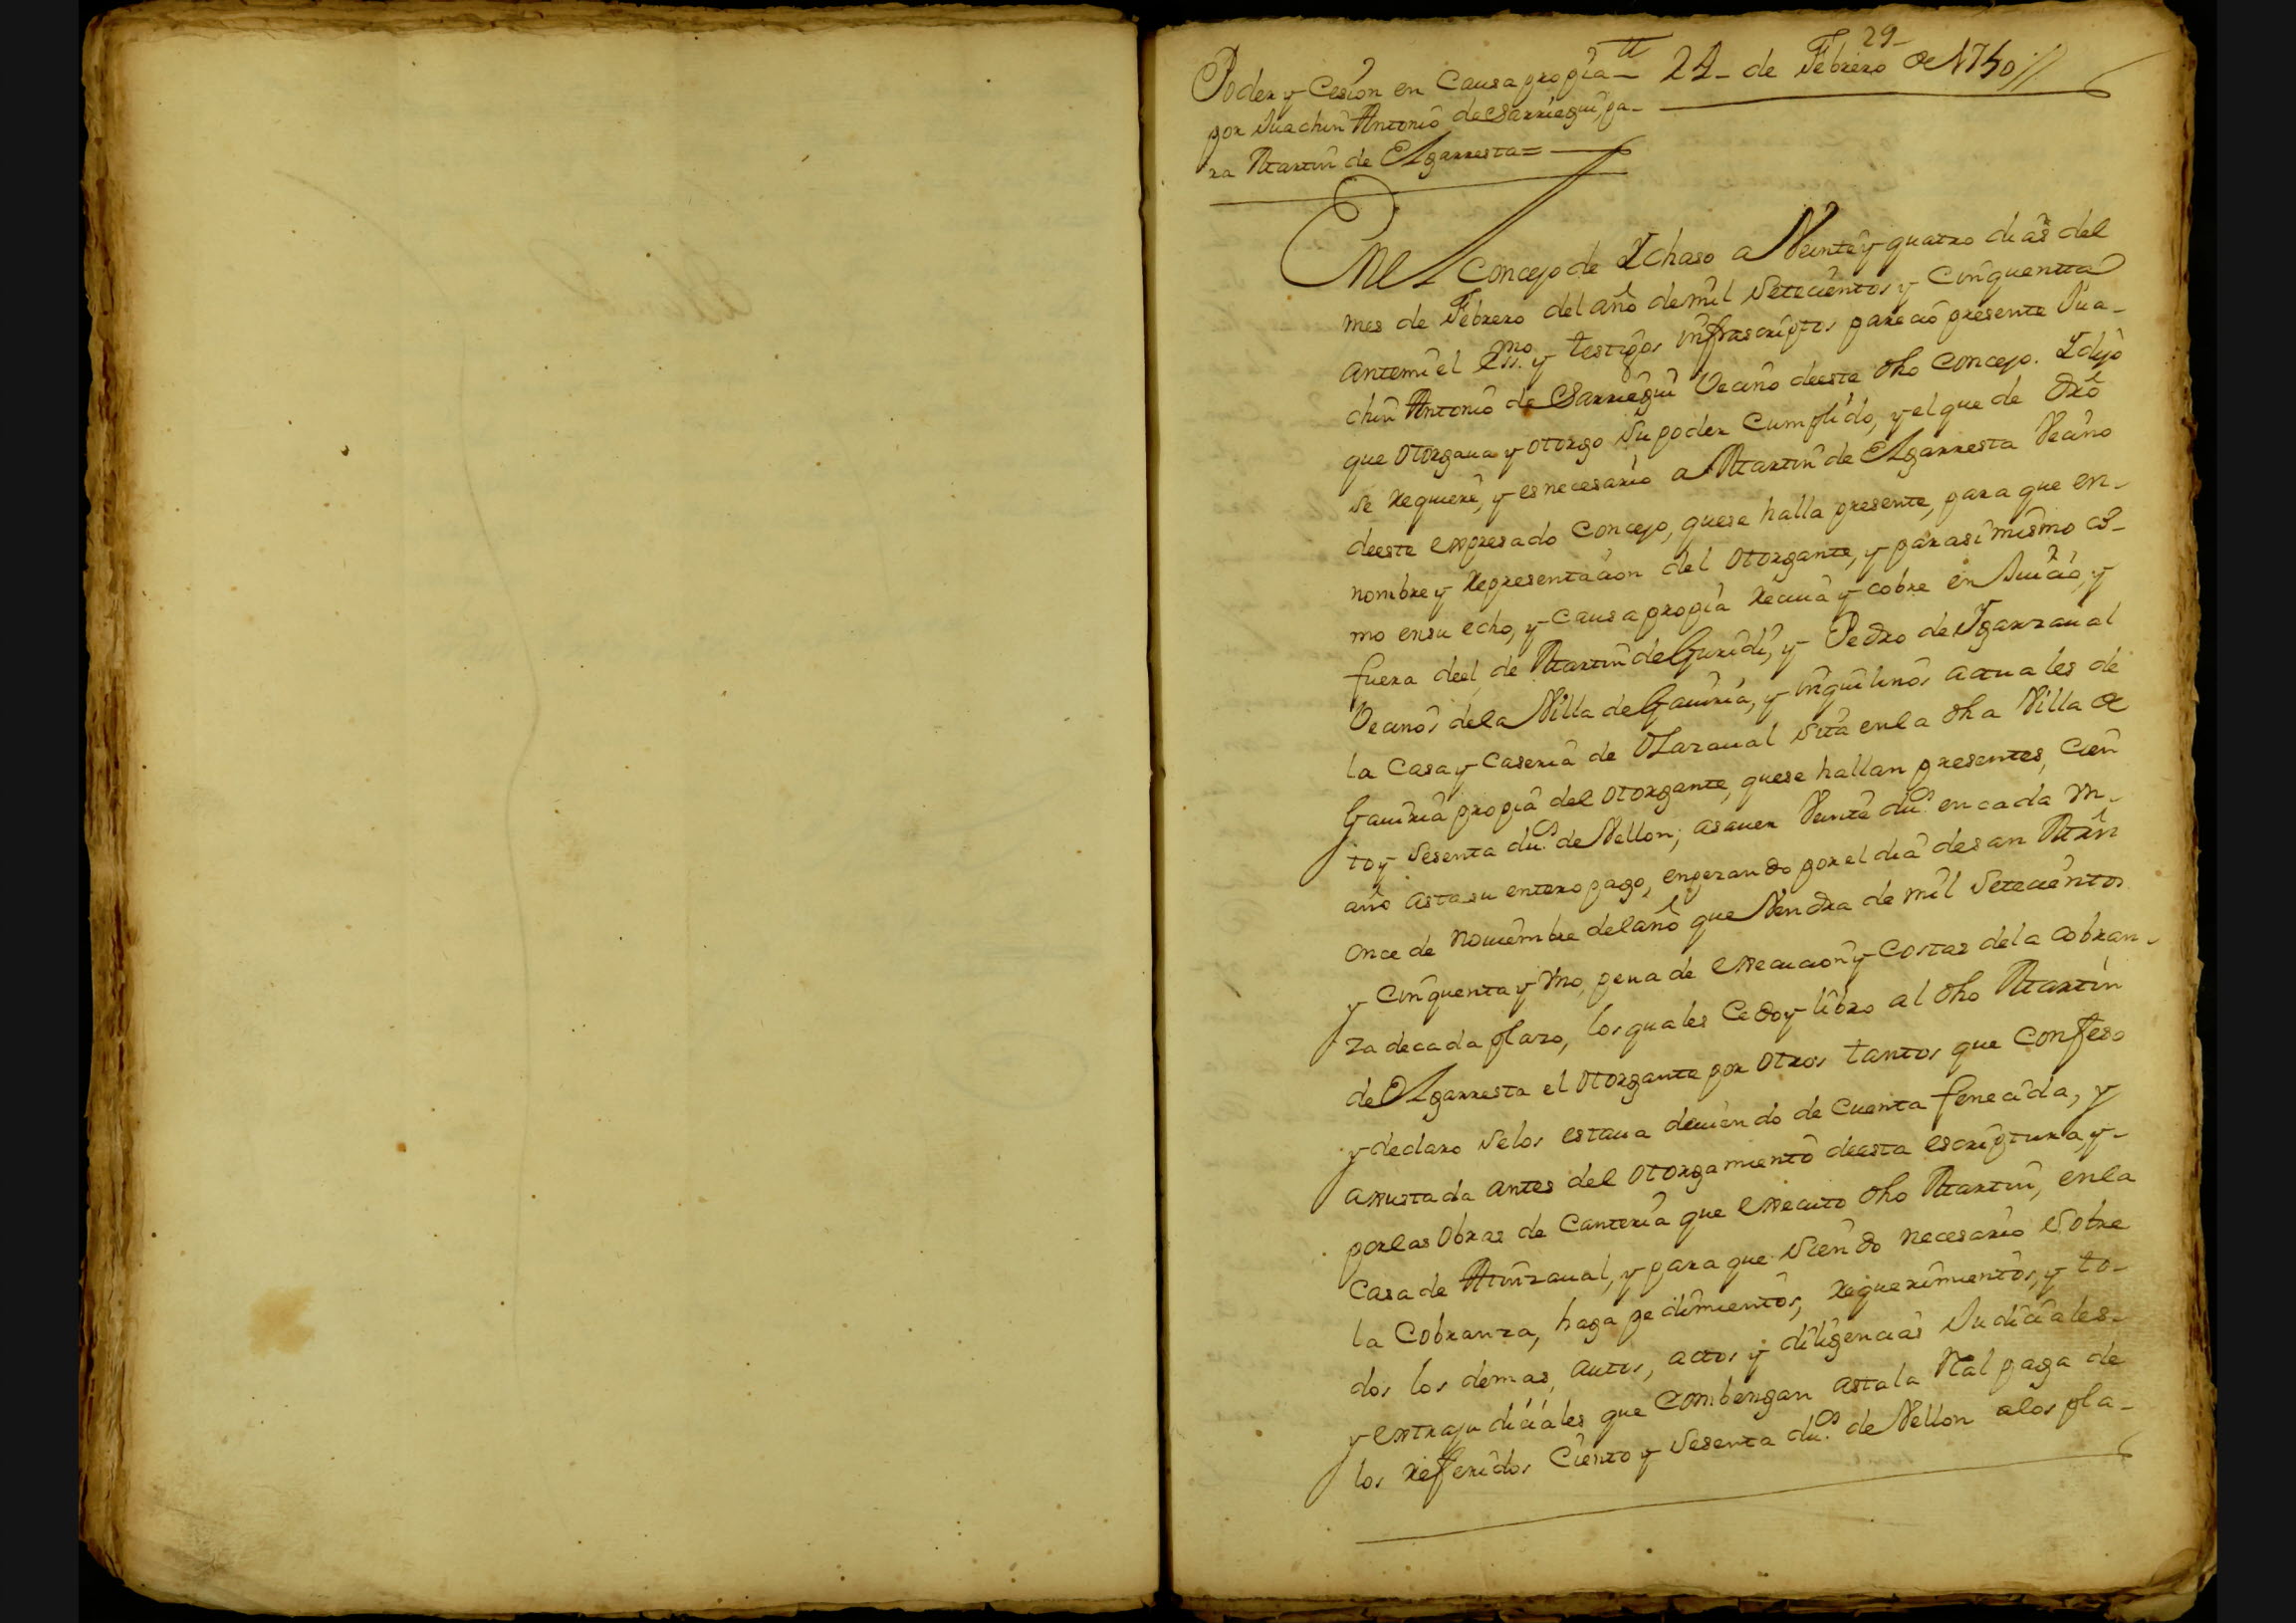 29-
Poder y Cesion en Causa propia 24 de Febrero de 1750 //
por Juachin Antonio de Sarriegui pa-
ra Martin de Elgarresta =
En el Concejo de Ychaso a Veinte y quatro dias del
mes de Febrero del año de mil Setecientos y Cinquentta
ante mi el essno. y testigos infrascriptos parecio presente Jua-
chin Antonio de Sarriegui Vecino de este dho Concejo. Y dijo
que otorgaua y otorgo su poder Cumplido, y el que de dro
se requiere, y es necesario a Martin de Elgarresta Vecino
de este expresado Concejo, que se halla presente, para que en-
nombre y representacion del otorgante, y para si mismo co-
mo en su echo, y Causa propia reciua y cobre en Juicio, y
fuera de el, de Martin de Guridi, y Pedro de Ygarzaual
Vecinos de la Villa de Gauiria, y inquilinos actuales de
la Casa y Caseria de Olazaual sita en la dha Villa de
Gauiria propia del otorgante, que se hallan presentes, cien
to y sesenta dus. de Vellon; asauer Veinte dus. en cada vn-
año asta su entero pago, enpezando por el dia de san Mrn
once de nouiembre del año que Vendra de mil Setecientos
y Cinquenta y vno, pena de execucion y Costas de la cobran-
za de cada plazo, los quales Cedo y libro al dho Martin
de Elgarresta el otorgante por otros tantos que Confeso
y declaro se los estaua deuiendo de Cuenta fenecida, y
axustada antes del otorgamiento de esta escriptura, y-
por las obras de Canteria que executo dho Martin, en la
Casa de Minzaual, y para que siendo necesario sobre
la Cobranza, haga pedimientos, requerimientos, y to-
dos los demas, autos, actos y diligencias Judiciales-
y extrajudiciales que Combengan asta la Real paga de
los refferidos Ciento y sesenta dus. de Vellon a los pla-